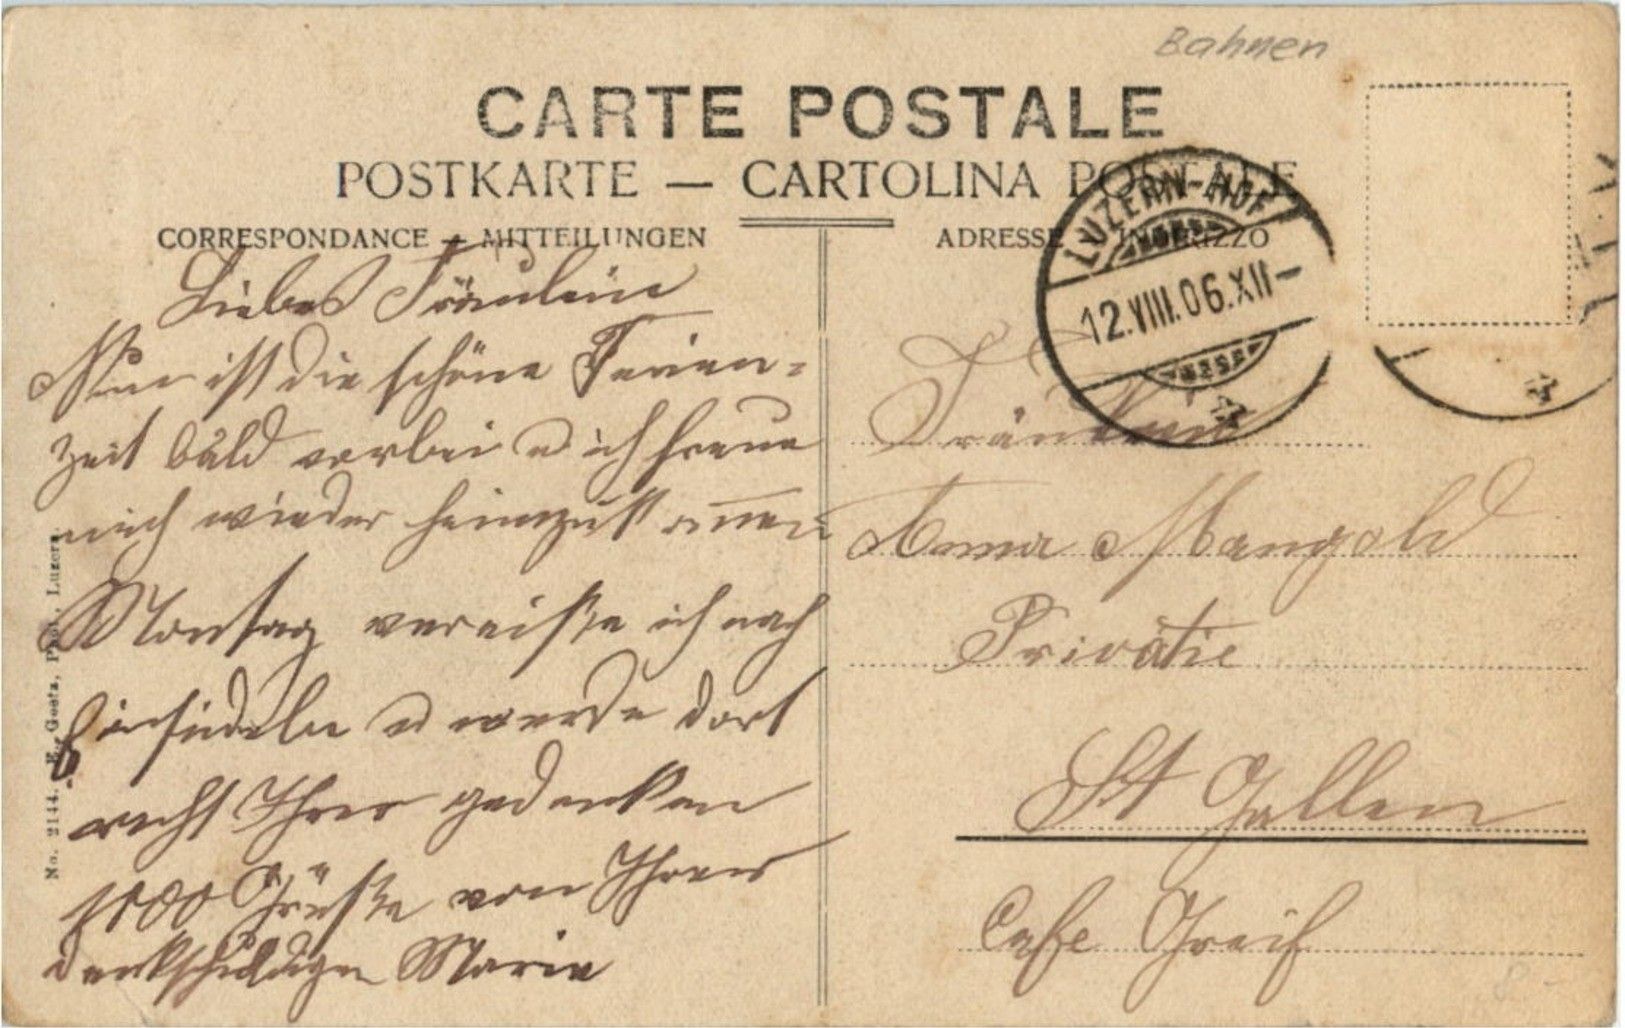 Bahnen
CARTE POSTALE
POSTKARTE — CARTOLINA POSTALE
CORRESPONDANCE - MITTEILUNGEN
ADRESSE - INDIRIZZO
LUZERN-HOF
12.VIII.06.XII-
Liebes Fräulein
Nun ist die schöne Ferien=
zeit bald vorbei u ich freue
mich wieder heimzukommen
Montag verreiste ich nach
Einsiedeln u werde dort
recht Ihrer gedenken
1000 Grüße von Ihrer
dankschuldigen Marie
Fräulein
Anna Mangold
Privatie
St Gallen
Cafe Greif
No. 2144. E. Goetz, Phot., Luzern.